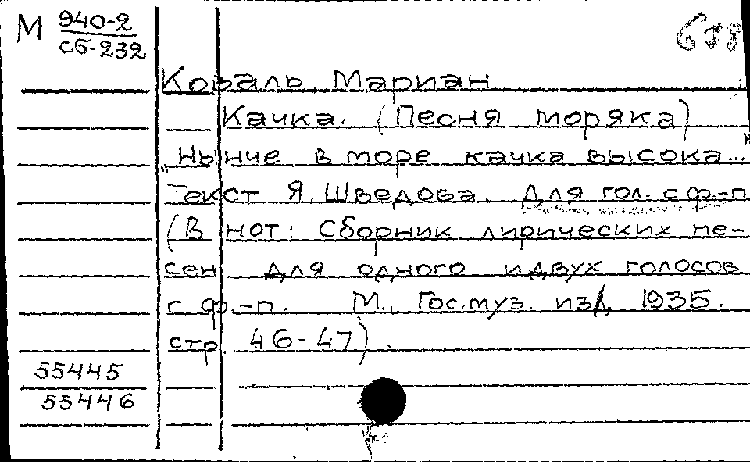 М 940-2
сб-232
678
Коваль Мариан
Качка. (Песня моряка)
„Нынче в море качка высока..."
Текст Я. Шведова. Для гол. с ф.-п.
(В нот: Сборник лирических пе-
сен для одного и двух голосов
с ф.-п. М., Гос. муз. изд, 1935.
стр. 46-47).
55445
55446